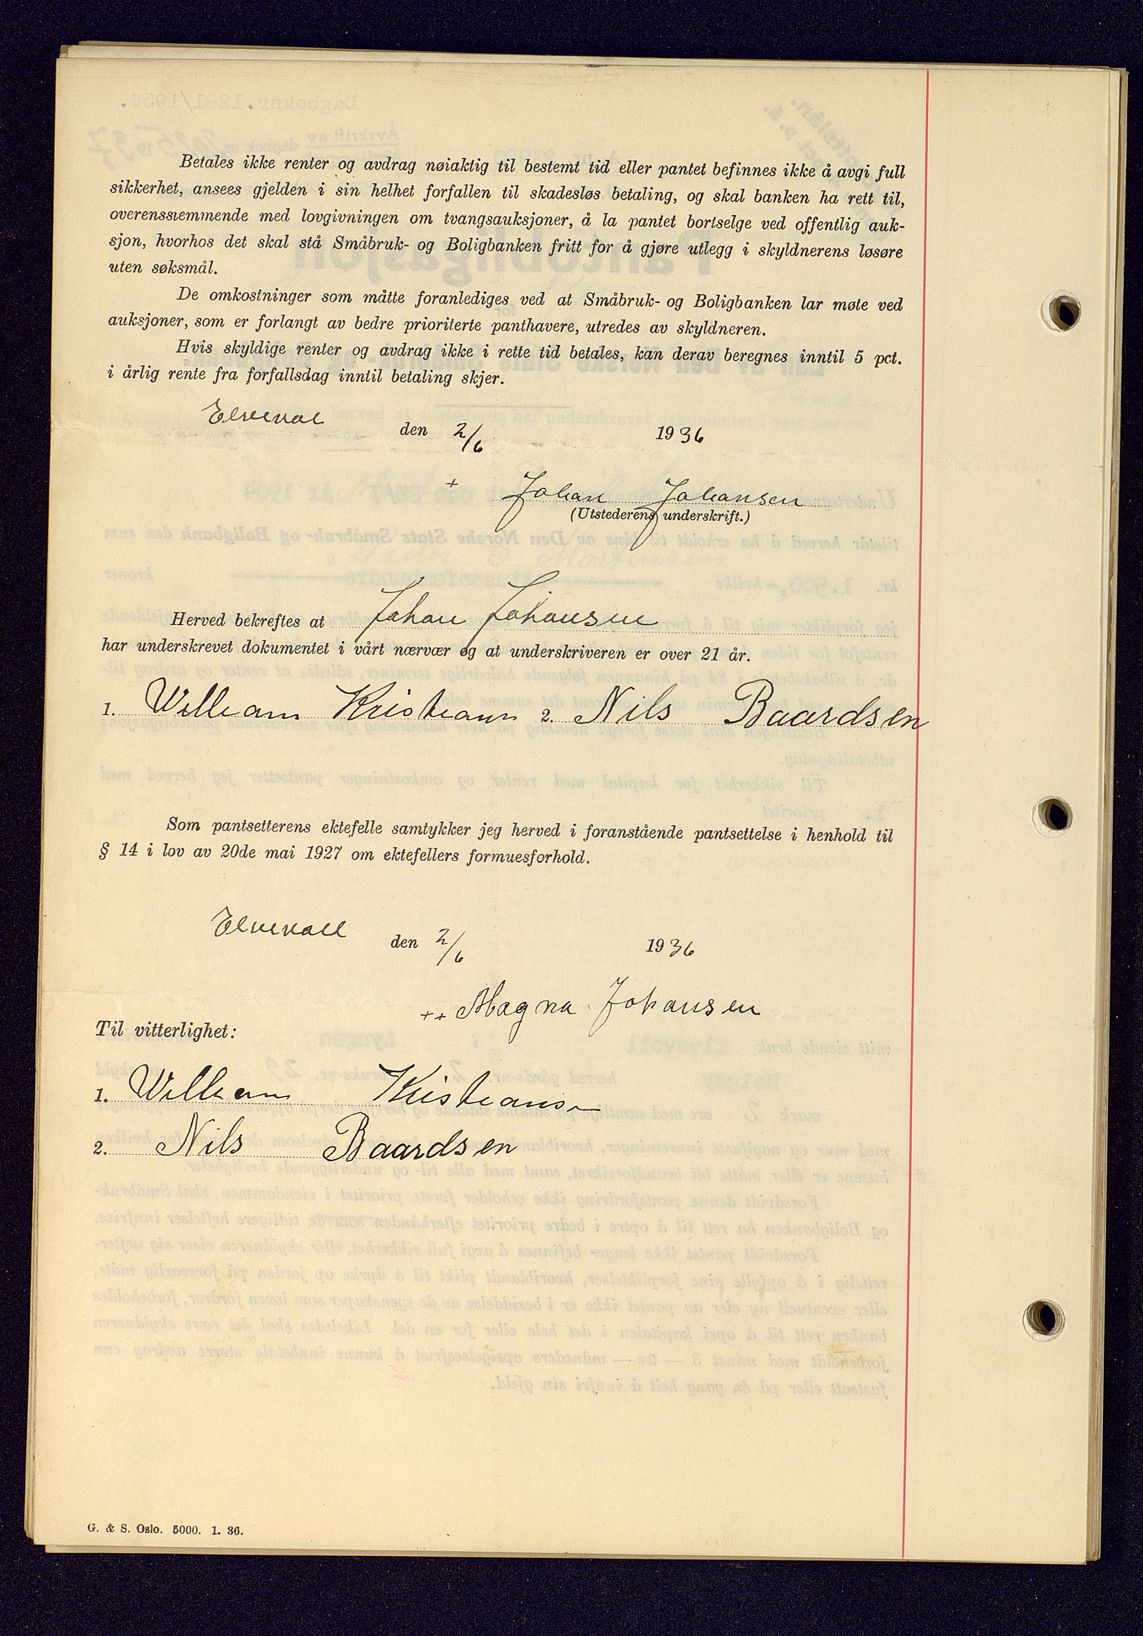 Betales ikke renter og avdrag nøiaktig til bestemt tid eller pantet befinnes ikke å avgi full
sikkerhet, ansees gjelden i sin helhet forfallen til skadesløs betaling, og skal banken ha rett til,
overensstemmende med lovgivningen om tvangsauksjoner, å la pantet bortselge ved offentlig auk-
sjon, hvorhos det skal stå Småbruk- og Boligbanken fritt for å gjøre utlegg i skyldnerens løsøre
uten søksmål.
De omkostninger som måtte foranlediges ved at Småbruk- og Boligbanken lar møte ved
auksjoner, som er forlangt av bedre prioriterte panthavere, utredes av skyldneren.
Hvis skyldige renter og avdrag ikke i rette tid betales, kan derav beregnes inntil 5 pct.
i årlig rente fra forfallsdag inntil betaling skjer.
Elvevol den 2/6 1936
+ Johan Johansen
(Utstederens underskrift.)
Herved bekreftes at Johan Johansen
har underskrevet dokumentet i vårt nærvær og at underskriveren er over 21 år.
1. William Kristians 2. Nils Baardsen
Som pantsetterens ektefelle samtykker jeg herved i foranstående pantsettelse i henhold til
§ 14 i lov av 20de mai 1927 om ektefellers formuesforhold.
Elvevoll den 2/6 1936
++ Magna Johansen
Til vitterlighet:
1. William Kristianse
2. Nils Baardsen
G. & S. Oslo. 5000. 1. 36.